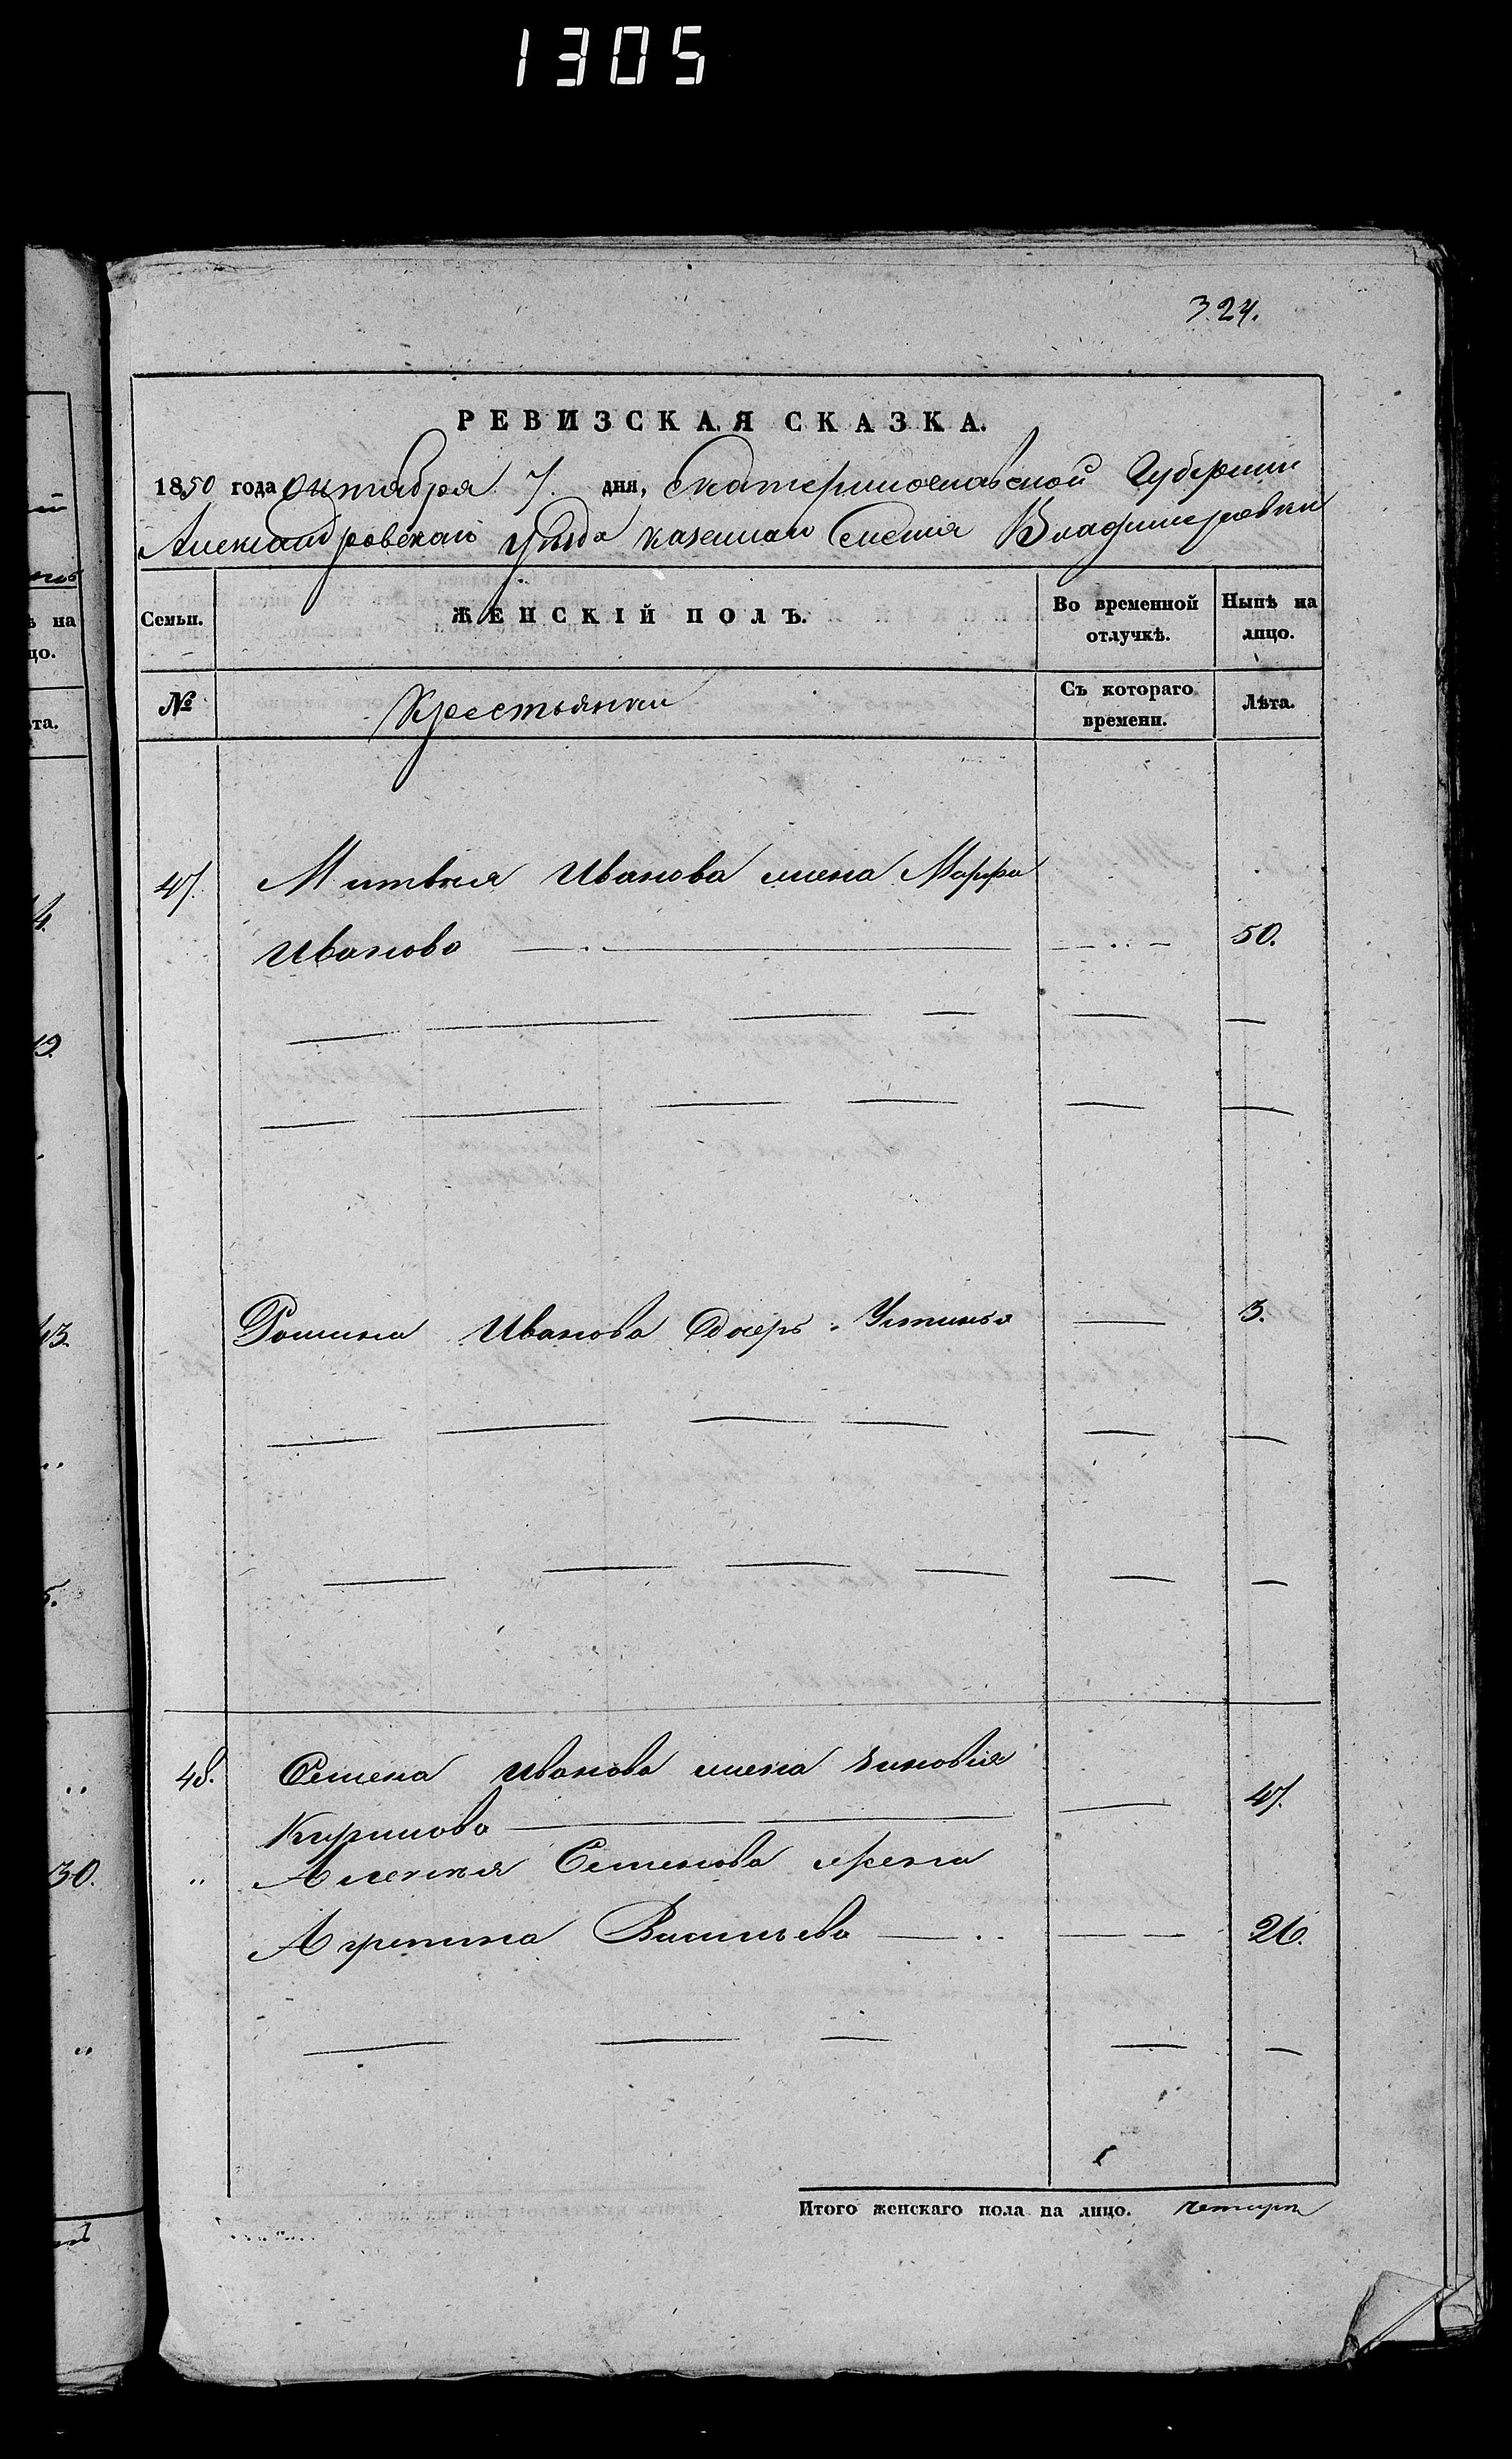 1305
324.
РЕВИЗСКАЯ СКАЗКА.
1850 года октября 7. дня, Екатеринославской Губернии
Александровскаго уѣзда казеннаго селенія Владимировки
Семьи. ЖЕНСКІЙ ПОЛЪ. Во временной отлучкѣ. Нынѣ на лицо.
№ Крестьянки Съ котораго времени. Лѣта.
47. Матвѣя Иванова жена Марфа
Иванова 50.
Фомина Иванова дочерь Устинья 3.
48. Семена Иванова жена Зиновія
Кирилова 47.
„ Алексѣя Семенова жена
Агрепина Васильева 26.
Итого женскаго пола на лицо. четыре
ѣ на
цо.
ѣта.
13.
30.